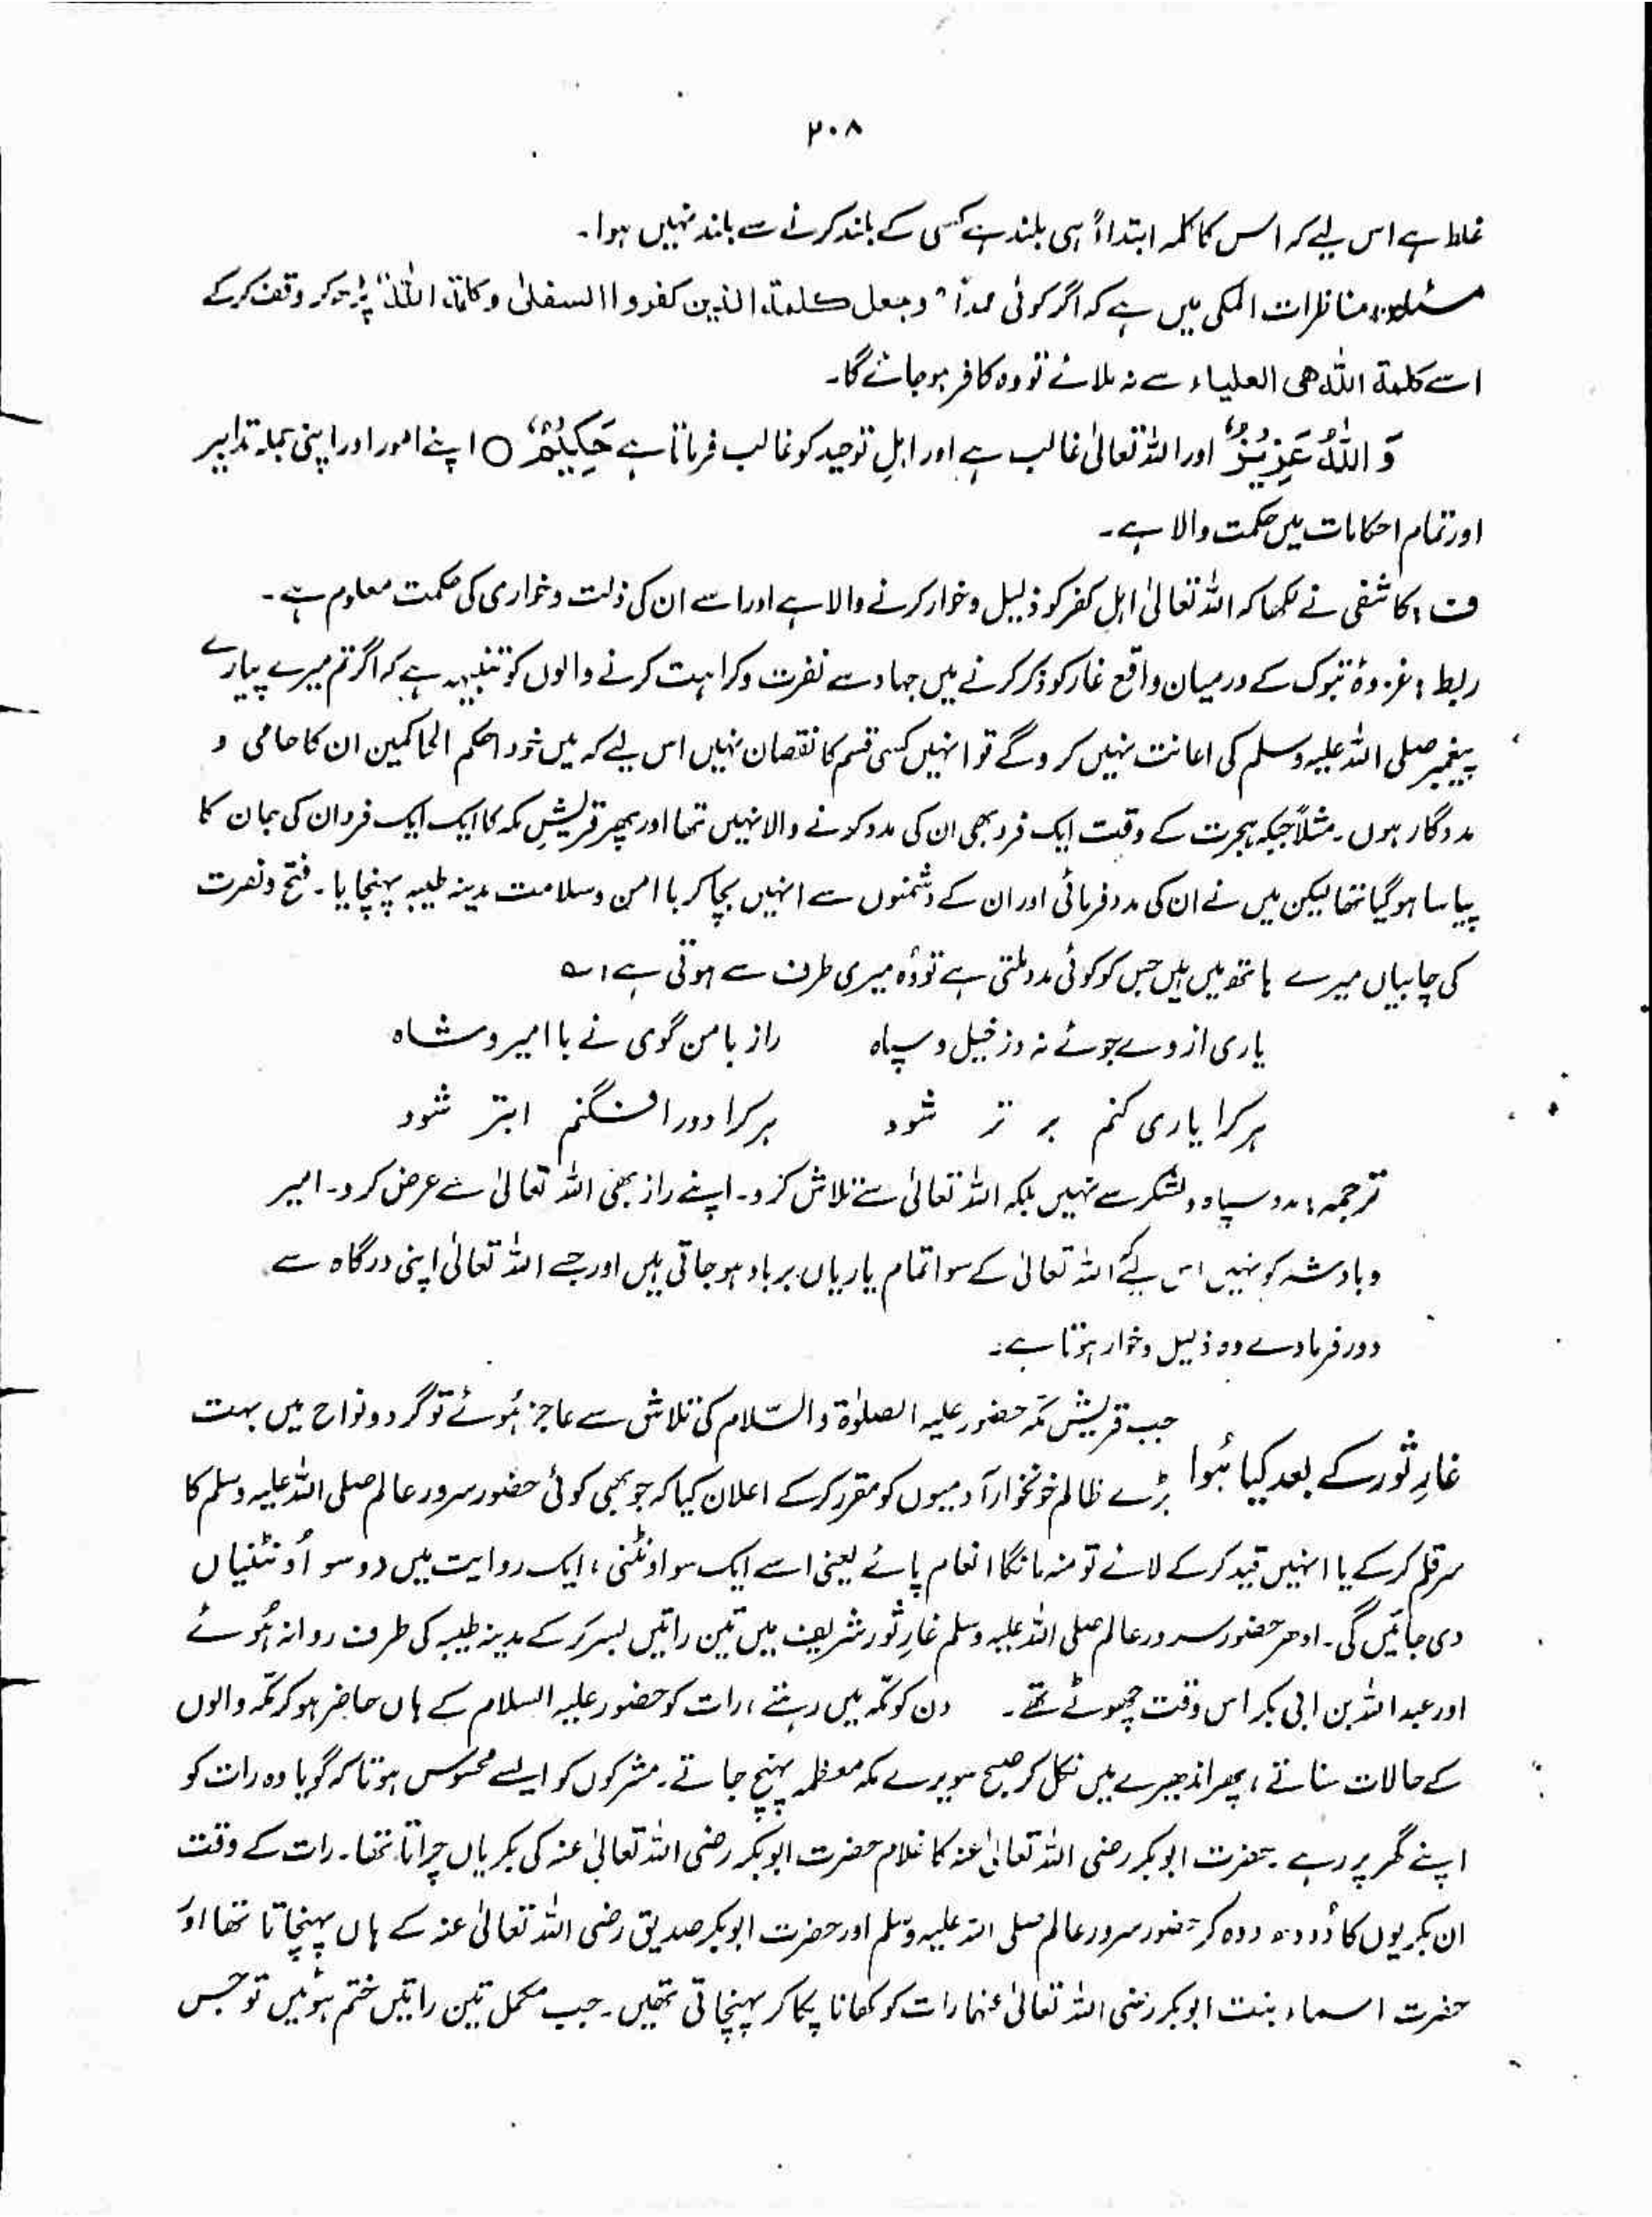 ٢٠٨
غلط ہے اس لیے کہ اس کا کلمہ ابتداءً ہی بلند ہے کسی کے بلند کرنے سے بلند نہیں ہوا۔
مسئلہ: مناظرات المکی میں ہے کہ اگر کوئی عمداً "وجعل کلمۃ الذین کفروا السفلیٰ وکلمۃ اللہ" پڑھ کر وقف کرکے
اسے کلمۃ اللہ ھی العلیاء سے نہ ملائے تو وہ کافر ہو جائے گا۔
وَ اللّٰہُ عَزِیْزٌ اور اللہ تعالیٰ غالب ہے اور اہلِ توحید کو غالب فرماتا ہے حَکِیْمٌ ○ اپنے امور اور اپنی جملہ تدابیر
اور تمام احکامات میں حکمت والا ہے۔
ف: کاشفی نے لکھا کہ اللہ تعالیٰ اہل کفر کو ذلیل و خوار کرنے والا ہے اور اسے ان کی ذلت و خواری کی حکمت معلوم ہے۔
ربط: غزوۂ تبوک کے درمیان واقع غار کو ذکر کرنے میں جہاد سے نفرت وکراہت کرنے والوں کو تنبیہ ہے کہ اگر تم میرے پیارے
پیغمبر صلی اللہ علیہ وسلم کی اعانت نہیں کرو گے تو انہیں کسی قسم کا نقصان نہیں اس لیے کہ میں خود احکم الحاکمین ان کا حامی و
مددگار ہوں۔ مثلاً جبکہ ہجرت کے وقت ایک فرد بھی ان کی مدد کرنے والا نہیں تھا اور پھر قریشِ مکہ کا ایک ایک فرد ان کی جان کا
پیاسا ہو گیا تھا لیکن میں نے ان کی مدد فرمائی اور ان کے دشمنوں سے انہیں بچا کر با امن وسلامت مدینہ طیبہ پہنچایا۔ فتح و نصرت
کی چابیاں میرے ہاتھ میں ہیں جس کو کوئی مدد ملتی ہے تو وُہ میری طرف سے ہوتی ہے، ؎
یاری از وے جوئے نہ وز خیل و سپاہ راز با من گوی نے با امیر و شاہ
ہر کرا یاری کنم بر تر شود ہر کرا دور افگنم ابتر شود
ترجمہ: مدد سپاہ و لشکر سے نہیں بلکہ اللہ تعالیٰ سے تلاش کرو۔ اپنے راز بھی اللہ تعالیٰ سے عرض کرو۔ امیر
و بادشہ کو نہیں اس لیے اللہ تعالیٰ کے سوا تمام یاریاں برباد ہو جاتی ہیں اور جسے اللہ تعالیٰ اپنی درگاہ سے
دور فرمادے وہ ذلیل و خوار ہوتا ہے۔
غارِ ثور کے بعد کیا ہُوا
جب قریش مکّہ حضور علیہ الصلوٰۃ والسّلام کی تلاش سے عاجز ہُوئے تو گرد و نواح میں بہت
بڑے ظالم خونخوار آدمیوں کو مقرر کرکے اعلان کیا کہ جو بھی کوئی حضور سرور عالم صلی اللہ علیہ وسلم کا
سر قلم کرکے یا انہیں قید کرکے لائے تو منہ مانگا انعام پائے یعنی اسے ایک سو اونٹنی، ایک روایت میں دو سو اُونٹنیاں
دی جائیں گی۔ ادھر حضور سرور عالم صلی اللہ علیہ وسلم غارِ ثور شریف میں تین راتیں بسر کر کے مدینہ طیبہ کی طرف روانہ ہُوئے
اور عبد اللہ بن ابی بکر اس وقت چھوٹے تھے۔ دن کو مکّہ میں رہتے، رات کو حضور علیہ السلام کے ہاں حاضر ہو کر مکّہ والوں
کے حالات سناتے، پھر اندھیرے میں نکل کر صبح سویرے مکہ معظمہ پہنچ جاتے۔ مشرکوں کو ایسے محسوس ہوتا کہ گویا وہ رات کو
اپنے گھر پر رہے۔ حضرت ابوبکر رضی اللہ تعالیٰ عنہ کا غلام حضرت ابوبکر رضی اللہ تعالیٰ عنہ کی بکریاں چراتا تھا۔ رات کے وقت
ان بکریوں کا دُودھ دوہ کر حضور سرور عالم صلی اللہ علیہ وسلم اور حضرت ابوبکر صدیق رضی اللہ تعالیٰ عنہ کے ہاں پہنچاتا تھا اور
حضرت اسماء بنت ابوبکر رضی اللہ تعالیٰ عنہما رات کو کھانا پکا کر پہنچاتی تھیں۔ جب مکمل تین راتیں ختم ہوئیں تو جس